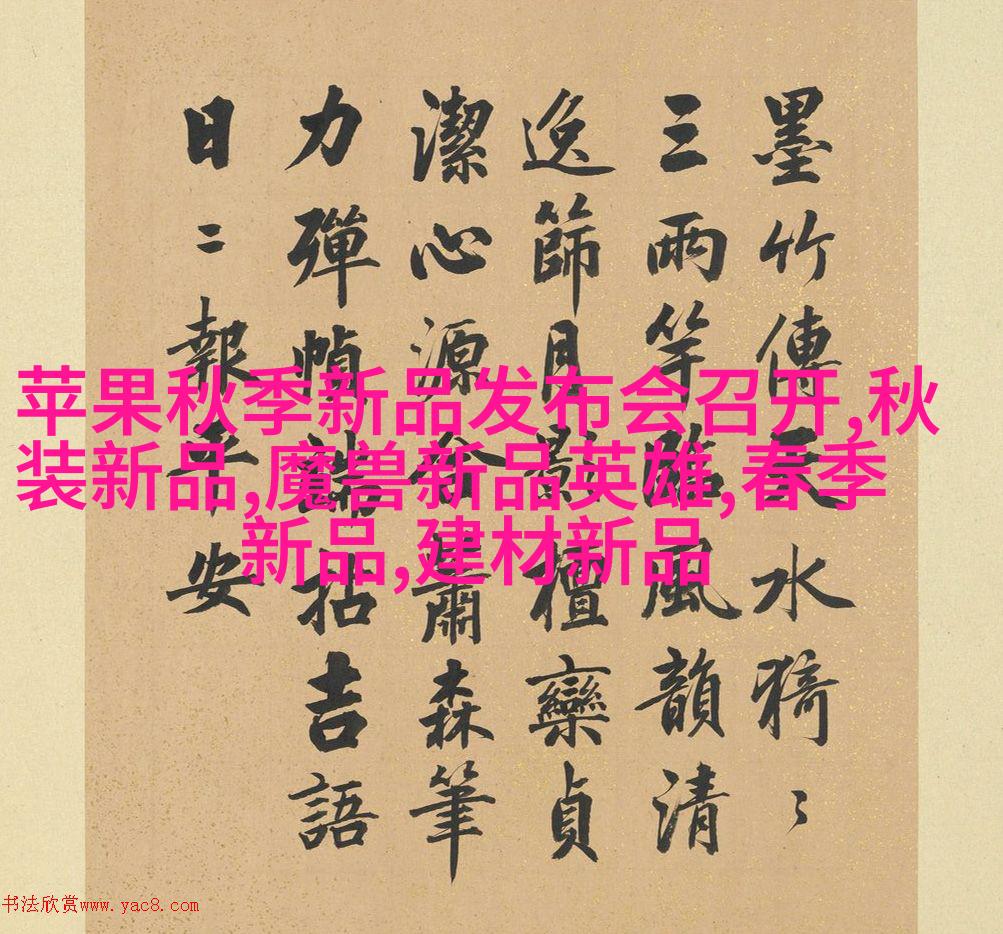 墨竹傳天水猗〻
三兩竿臨風韻清
逸篩月影檀欒貞
潔心源肅森筆
力彈幀端拈吉語
日二報平安
苹果秋季新品发布会召开,秋
装新品,魔兽新品英雄,春季
新品,建材新品
书法欣赏www.yac8.com